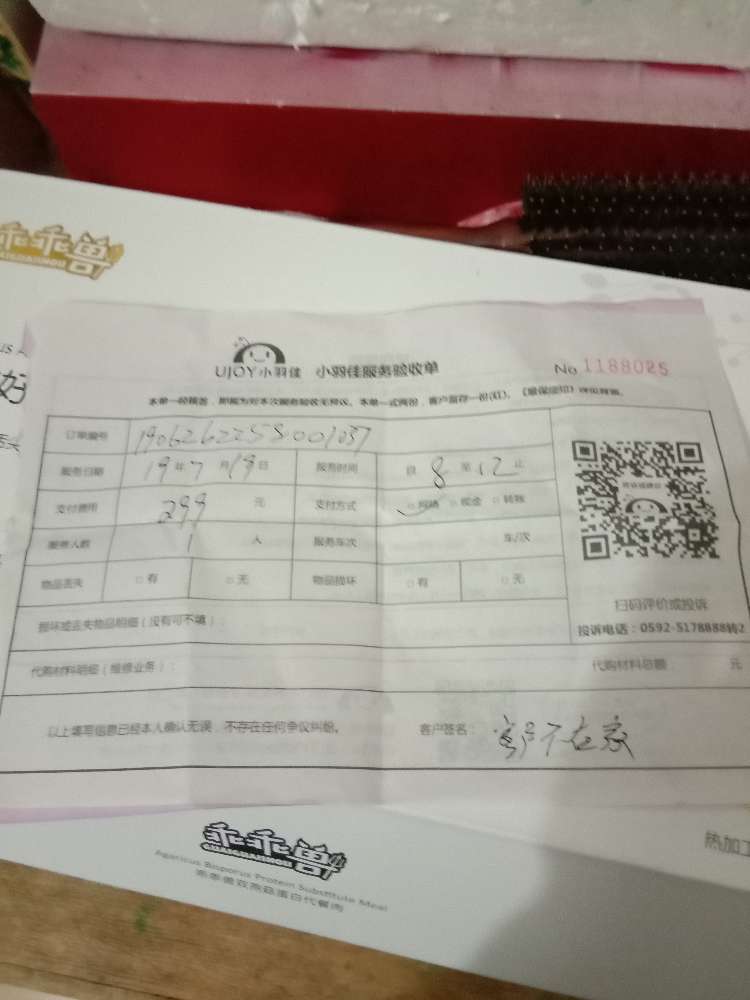 乖乖兽
GUAIGUAISHOU
UJOY小羽佳 小羽佳服务验收单 No 1188025
订单编号 1906262258001037
服务日期 19年7月19日 服务时间 自 8 至 12 止
支付费用 299 元 支付方式 ✓□网络 □现金 □转账
服务人数 1 人 服务车次 车/次
物品丢失 □有 □无 物品损坏 □有 □无
扫码评价或投诉
投诉电话：0592-5178888转2
损坏或丢失物品明细（没有可不填）：
代购材料明细（维修业务）： 代购材料总额： 元
以上填写信息已经本人确认无误，不存在任何争议纠纷。 客户签名： 客户不在家
乖乖兽
GUAIGUAISHOU
Agaricus Bisporus Protein Substitute Meal
乖乖兽双孢菇蛋白代餐肉
热加工